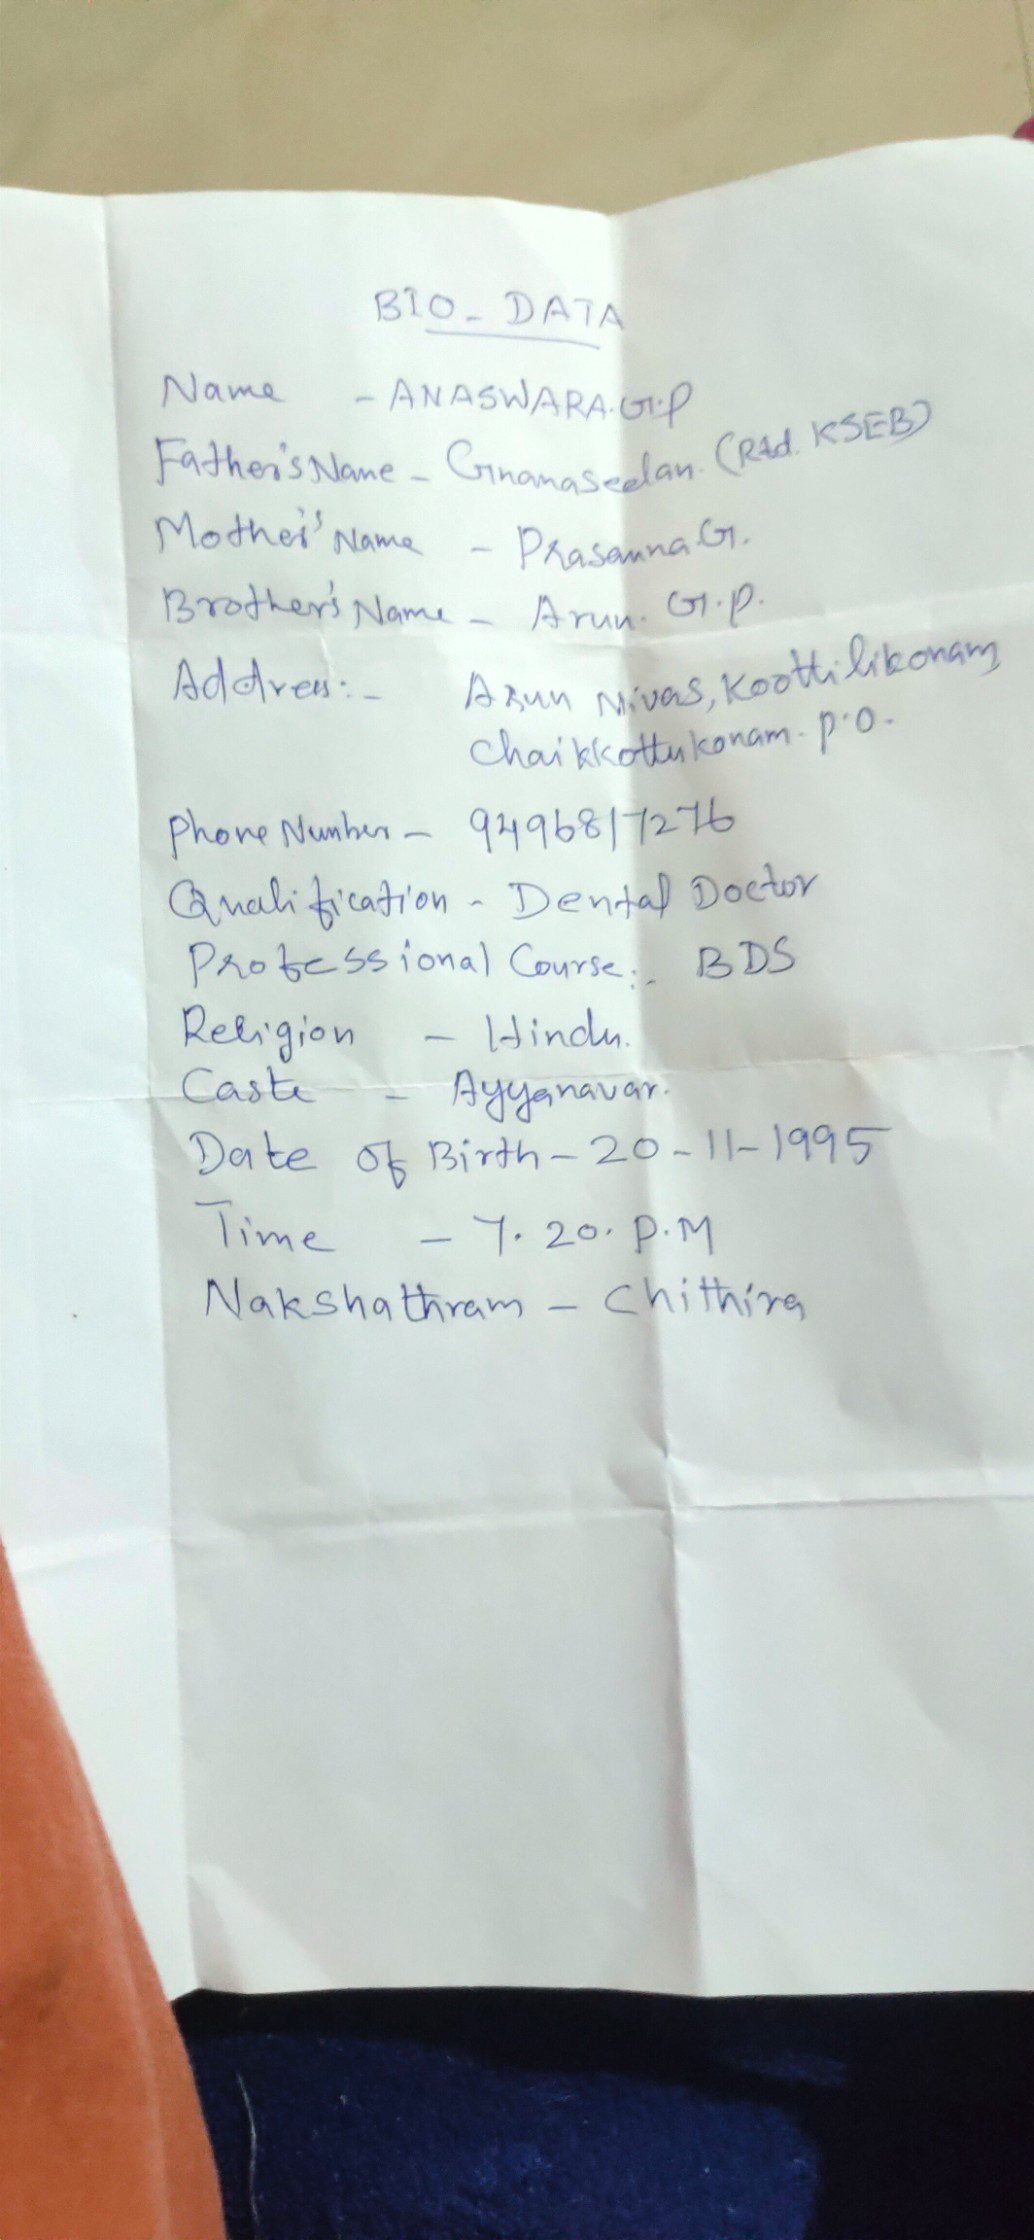 BIO - DATA
Name - ANASWARA.G.P
Father's Name - Gnanaseelan. (Rtd. KSEB)
Mother's Name - Prasanna G.
Brother's Name - Arun. G.P.
Address:- Arun Nivas, Koottilikonam
Chaikkottukonam. P.O.
Phone Number - 9496817276
Qualification - Dental Doctor
Professional Course:- BDS
Religion - Hindu.
Caste - Ayyanavar.
Date of Birth - 20-11-1995
Time - 7.20. P.M
Nakshathram - Chithira